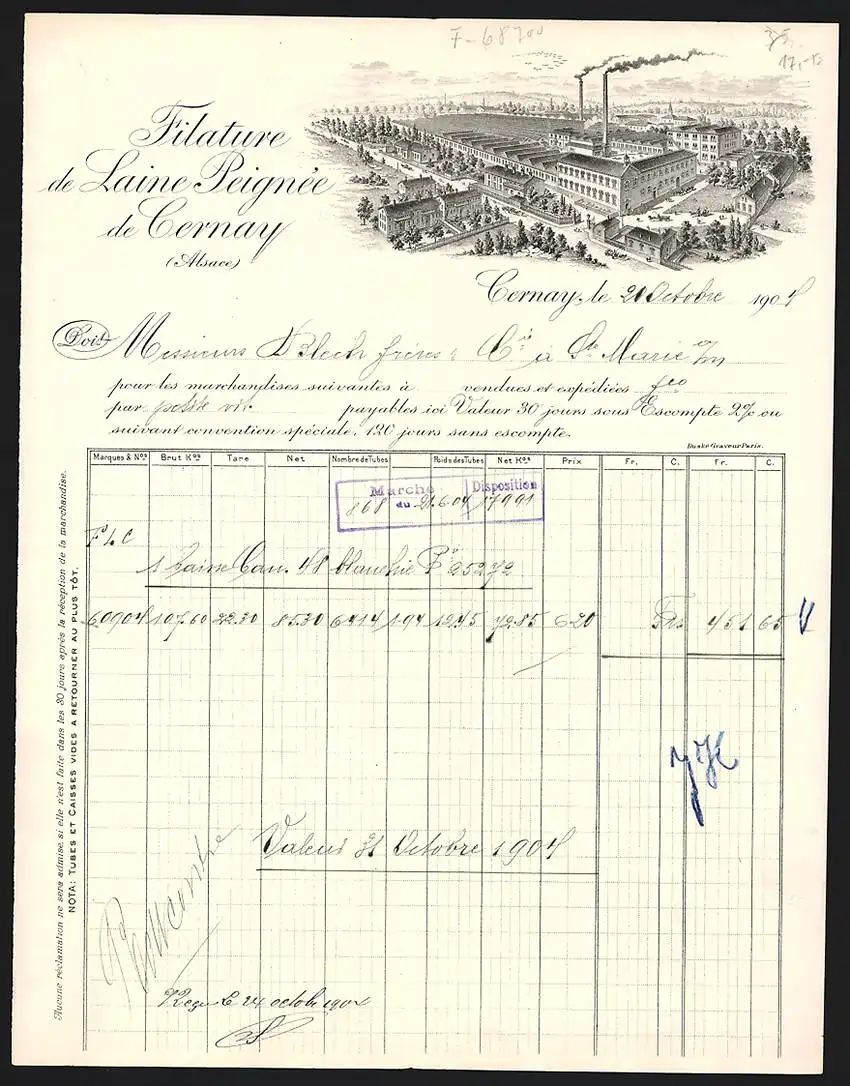 F-68700
Filature
de Laine Peignée
de Cernay
(Alsace)
Cernay, le 21 Octobre 1904
Doit Messieurs Blech frères & Cie à Ste Marie a/m
pour les marchandises suivantes à vendues et expédiées fco
par petite vit. payables ici Valeur 30 jours sous Escompte 2% ou
suivant convention spéciale. 120 jours sans escompte.
Buské Graveur Paris.
Marques & Nos Brut Kos Tare Net Nombre de Tubes Poids des Tubes Net Kos Prix Fr. C. Fr. C.
Marché Disposition
868 du 21.6.04 17991
F L C
1 Caisse Can. 48 blanchie 25272
60904 107.60 22.30 85.30 6414 1.94 12.45 72.85 6.20 Frs 451 65
Valeur 31 Octobre 1904
Reçu le 24 octobre 1904
Aucune réclamation ne sera admise, si elle n'est faite dans les 30 jours après la réception de la marchandise.
NOTA: TUBES ET CAISSES VIDES A RETOURNER AU PLUS TÔT.